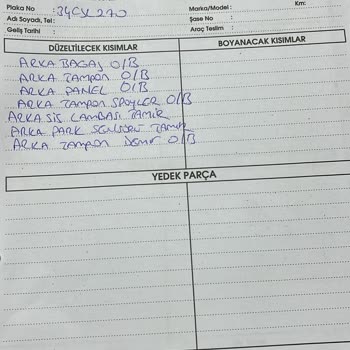 Plaka No : 34CSL270
Marka/Model :
Km:
Adı Soyadı, Tel :
Şase No :
Geliş Tarihi :
Araç Teslim :
DÜZELTİLECEK KISIMLAR
BOYANACAK KISIMLAR
ARKA BAGAJ O/B
ARKA TAMPON O/B
ARKA PANEL O/B
ARKA TAMPON SPOYLER O/B
ARKA SİS LAMBASI TAMİR
ARKA PARK SENSÖRÜ TAMİR
ARKA TAMPON DEMİR O/B
YEDEK PARÇA